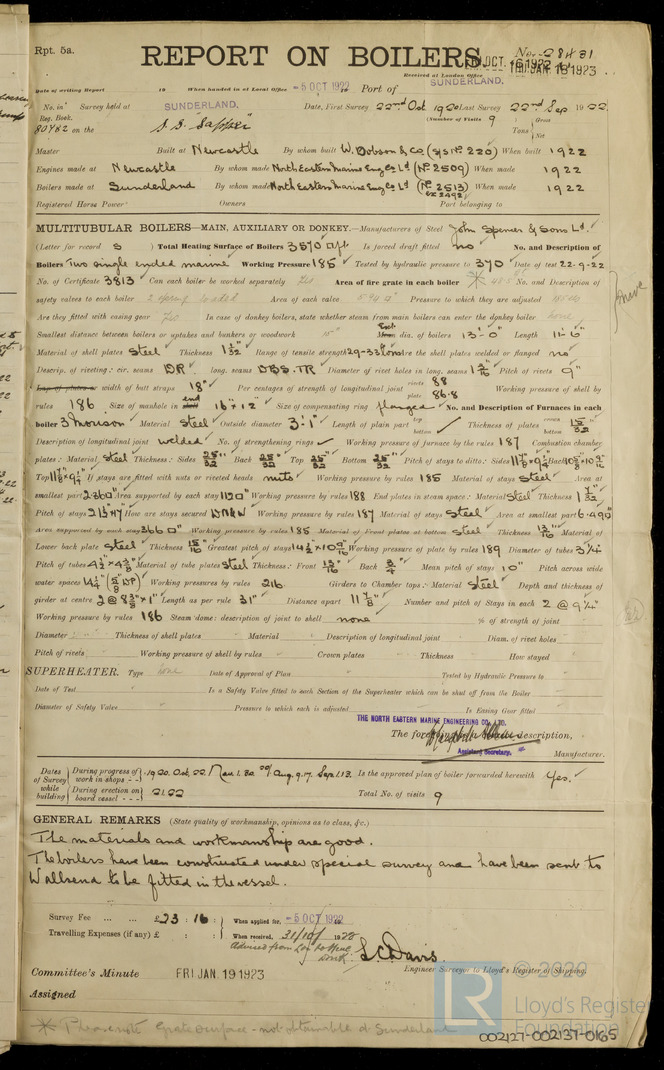 Rpt. 5a.
REPORT ON BOILERS.
No. 28481
FRI. OCT. 6 1922
THU. JAN. 18 1923
Received at London Office
Date of writing Report 19 When handed in at Local Office -5 OCT 1922 Port of SUNDERLAND.
No. in Survey held at SUNDERLAND. Date, First Survey 22nd Oct 1920 Last Survey 22nd Sep 1922.
Reg. Book. (Number of Visits 9
80482 on the S.S. "Sapper" Tons { Gross Net
Master Built at Newcastle By whom built W. Dobson & Co (Yd No 220) When built 1922
Engines made at Newcastle By whom made North Eastern Marine Eng Co Ld (No 2509) When made 1922
Boilers made at Sunderland By whom made North Eastern Marine Eng Co Ld (No 2513) When made 1922
Registered Horse Power Owners Port belonging to
MULTITUBULAR BOILERS—MAIN, AUXILIARY OR DONKEY.—Manufacturers of Steel John Spencer & Sons Ld.
(Letter for record S ) Total Heating Surface of Boilers 3570 Is forced draft fitted no No. and Description of
Boilers Two single ended marine Working Pressure 185 Tested by hydraulic pressure to 370 Date of test 22-9-22
No. of Certificate 3813 Can each boiler be worked separately Yes Area of fire grate in each boiler No. and Description of
safety valves to each boiler 2 spring loaded Area of each valve Pressure to which they are adjusted
Are they fitted with easing gear Yes In case of donkey boilers, state whether steam from main boilers can enter the donkey boiler none
Smallest distance between boilers or uptakes and bunkers or woodwork 15" dia. of boilers 13-0" Length 11-6"
Material of shell plates Steel Thickness 1 1/32" Range of tensile strength 29-33 tons Are the shell plates welded or flanged no
Descrip. of riveting: cir. seams DR. long. seams DBS.TR Diameter of rivet holes in long. seams 1 1/16" Pitch of rivets 9"
width of butt straps 18" Per centages of strength of longitudinal joint rivets 88 plate 86.8 Working pressure of shell by
rules 186 Size of manhole in end 16" x 12" Size of compensating ring flanged No. and Description of Furnaces in each
boiler 3 Morison Material Steel Outside diameter 3-1" Length of plain part Thickness of plates 15/32"
Description of longitudinal joint welded No. of strengthening rings Working pressure of furnace by the rules 187 Combustion chamber
plates: Material Steel Thickness: Sides 25/32" Back 25/32" Top 25/32" Bottom 25/32" Pitch of stays to ditto: Sides Back
Top If stays are fitted with nuts or riveted heads nuts Working pressure by rules 185 Material of stays Steel Area at
smallest part Area supported by each stay Working pressure by rules 188 End plates in steam space: Material Steel Thickness 1 1/32"
Pitch of stays How are stays secured DN&W Working pressure by rules 187 Material of stays Steel Area at smallest part 6.490"
Area supported by each stay 366 Working pressure by rules 185 Material of Front plates at bottom Steel Thickness 13/16" Material of
Lower back plate Steel Thickness 15/16" Greatest pitch of stays Working pressure of plate by rules 189 Diameter of tubes 3 1/4"
Pitch of tubes Material of tube plates Steel Thickness: Front 13/16" Back 3/4" Mean pitch of stays 10" Pitch across wide
water spaces 14 1/4" Working pressures by rules 216 Girders to Chamber tops: Material Steel Depth and thickness of
girder at centre Length as per rule 31" Distance apart 11 7/8" Number and pitch of Stays in each 2 @ 9 1/4"
Working pressure by rules 186 Steam dome: description of joint to shell none % of strength of joint
Diameter Thickness of shell plates Material Description of longitudinal joint Diam. of rivet holes
Pitch of rivets Working pressure of shell by rules Crown plates Thickness How stayed
SUPERHEATER. Type none Date of Approval of Plan Tested by Hydraulic Pressure to
Date of Test Is a Safety Valve fitted to each Section of the Superheater which can be shut off from the Boiler
Diameter of Safety Valve Pressure to which each is adjusted Is Easing Gear fitted
THE NORTH EASTERN MARINE ENGINEERING CO., LTD.
The foregoing is a correct description,
Assistant Secretary. Manufacturer.
Dates of Survey while building { During progress of work in shops - - 1920. Oct. 22. Aug. 9.17. Sep. 1.13. Is the approved plan of boiler forwarded herewith Yes.
During erection on board vessel - - - 21.22 Total No. of visits 9
GENERAL REMARKS (State quality of workmanship, opinions as to class, &c.)
The materials and workmanship are good.
The boilers have been constructed under special survey and have been sent to
Wallsend to be fitted in the vessel.
Survey Fee ... ... £23 : 16 : When applied for, -5 OCT 1922
Travelling Expenses (if any) £ : : When received, 21/10/1922
L.C. Davis.
Engineer Surveyor to Lloyd's Register of Shipping.
Committee's Minute FRI. JAN. 19 1923
Assigned
* Please note Grate surface - not obtainable at Sunderland
© 2020
LR
Lloyd's Register
Foundation
002127-002137-0165